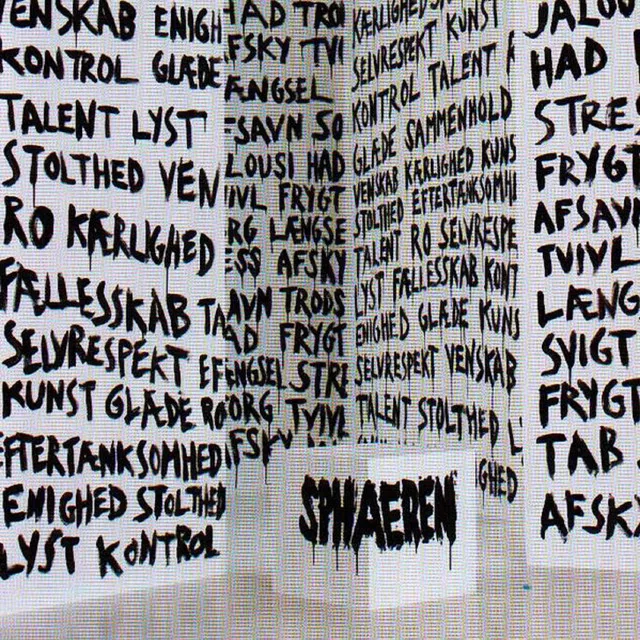 VENSKAB ENIGH
KONTROL GLÆDE
TALENT LYST
STOLTHED VEN
RO KÆRLIGHED
FÆLLESSKAB TA
SELVRESPEKT EF
KUNST GLÆDE RO
EFTERTÆNKSOMHED
ENIGHED STOLTHED
LYST KONTROL
HAD TRO
FSKY TVI
ÆNGSEL
SAVN SO
LOUSI HAD
IVL FRYGT
RG LÆNGSE
ESS AFSKY
AVN TRODS
AD FRYGT
ENGSEL STRE
ORG TVIVL
FSKY
KÆRLIGHED
SELVRESPEKT KUNST
KONTROL TALENT
GLÆDE SAMMENHOLD
VENSKAB KÆRLIGHED KUNS
STOLTHED EFTERTÆNKSOMH
TALENT RO SELVRESPE
LYST FÆLLESSKAB KONT
ENIGHED GLÆDE KUNS
SELVRESPEKT VENSKAB
TALENT STOLTHED L
IGHED
JALOU
HAD
STRE
FRYGT
AFSAV
TVIVL
LÆNG
SVIGT
FRYGT
TAB
AFSK
SPHAEREN